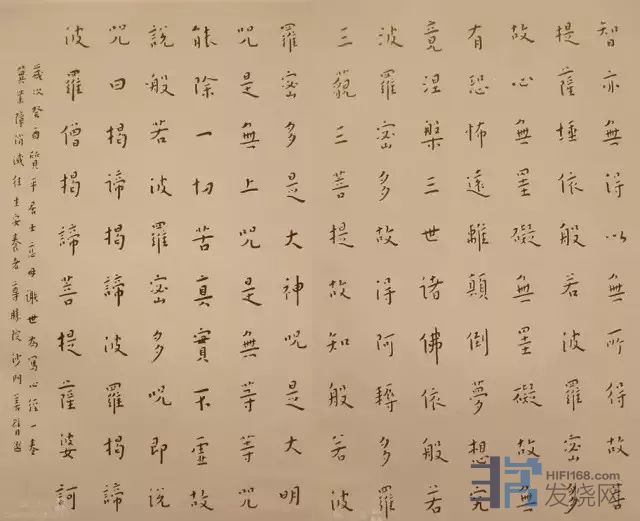 智亦無得以無所得故菩
提薩埵依般若波羅密多
故心無罣礙無罣礙故無
有恐怖遠離顛倒夢想究
竟涅槃三世諸佛依般若
波羅密多故得阿耨多羅
三藐三菩提故知般若波
羅密多是大神咒是大明
咒是無上咒是無等等咒
能除一切苦真實不虛故
說般若波羅密多咒即說
咒曰揭諦揭諦波羅揭諦
波羅僧揭諦菩提薩婆訶
歲次癸酉質平居士亡母謝世為寫心經一卷
冀業障消滅往生安養者尊勝院沙門善臂
HIFI168.com
发烧网